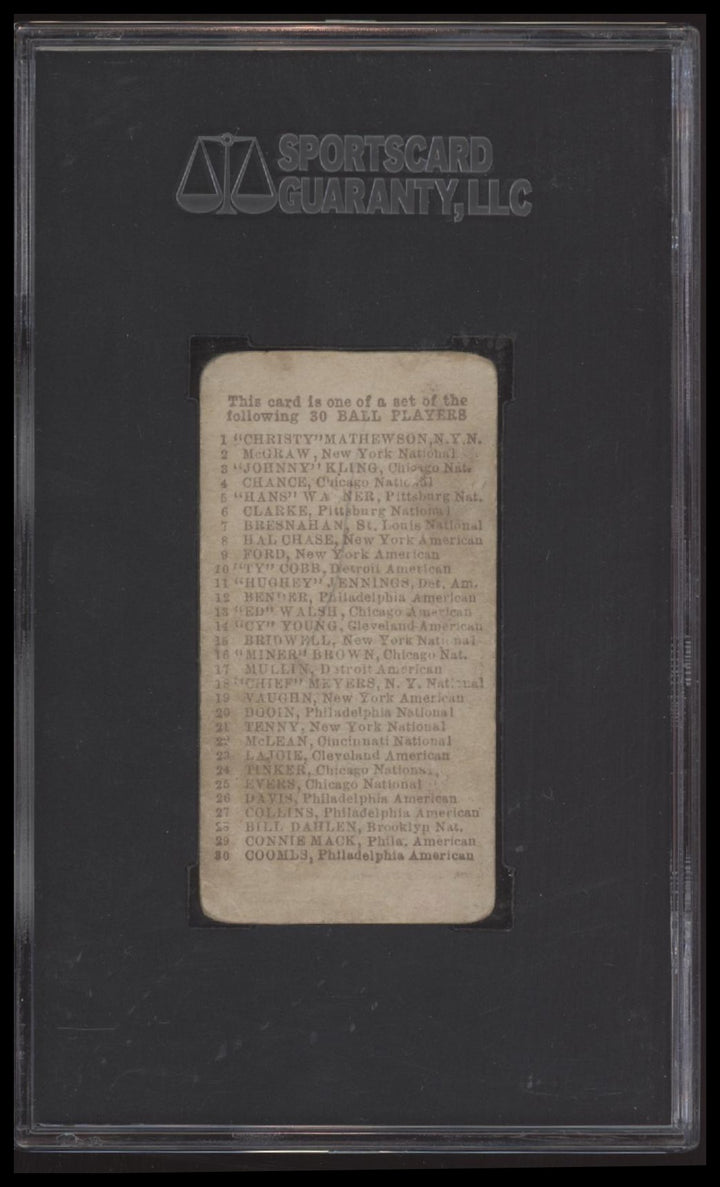 SPORTSCARD
GUARANTY, LLC
This card is one of a set of the
following 30 BALL PLAYERS
1 "CHRISTY" MATHEWSON, N.Y.N.
2 McGRAW, New York National
3 "JOHNNY" KLING, Chicago Nat.
4 CHANCE, Chicago National
5 "HANS" WA NER, Pittsburg Nat.
6 CLARKE, Pittsburg National
7 BRESNAHAN, St. Louis National
8 HAL CHASE, New York American
9 FORD, New York American
10 "TY" COBB, Detroit American
11 "HUGHEY" JENNINGS, Det. Am.
12 BENDER, Philadelphia American
13 "ED" WALSH, Chicago American
14 "CY" YOUNG, Cleveland American
15 BRIDWELL, New York National
16 "MINER" BROWN, Chicago Nat.
17 MULLIN, Detroit American
18 "CHIEF" MEYERS, N. Y. National
19 VAUGHN, New York American
20 DOOIN, Philadelphia National
21 TENNY, New York National
22 McLEAN, Cincinnati National
23 LAJOIE, Cleveland American
24 TINKER, Chicago National
25 EVERS, Chicago National
26 DAVIS, Philadelphia American
27 COLLINS, Philadelphia American
28 BILL DAHLEN, Brooklyn Nat.
29 CONNIE MACK, Phila. American
30 COOMBS, Philadelphia American